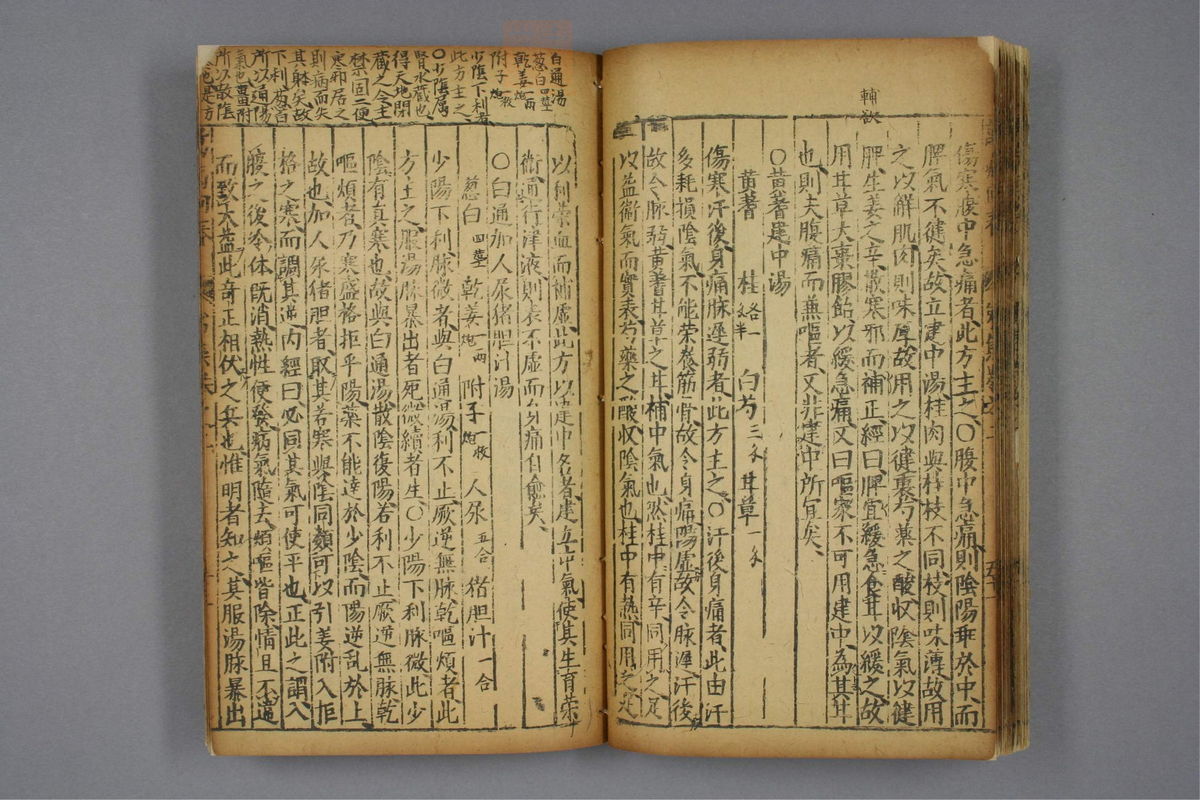 輔欲
傷寒腹中急痛者此方主之〇腹中急痛則陰陽乖於中而
脾氣不健矣故立建中湯桂肉與桂枝不同枝則味薄故用
之以解肌肉則味厚故用之以健裏芍藥之酸収陰氣以健
脾生姜之辛散寒邪而補正經曰脾宜緩急食甘以緩之故
用甘草大棗膠飴以緩急痛又曰嘔家不可用建中為其甘
也則夫腹痛而兼嘔者又非建中所宜矣
〇黃蓍建中湯
黃蓍 桂各一文半 白芍三文 甘草一文
傷寒汗後身痛脉遲弱者此方主之〇汗後身痛者此由汗
多耗損陰氣不能荣養筋骨故令身痛陽虛故令脉遲汗後
故令脉弱黃蓍甘草之甘補中氣也然桂中有辛同用之足
以益衞氣而實表芍藥之酸収陰氣也桂中有熱同用之足
以利荣血而補虛此方以建中名者建立中氣使其生育荣
衛通行津液則表不虛而身痛自愈矣
〇白通加人尿猪胆汁湯
葱白四莖 乾姜炮一兩 附子一枚炮 人尿五合 猪胆汁一合
少陽下利脉微者與白通湯利不止厥逆無脉乾嘔煩者此
方主之服湯脉暴出者死微續者生〇少陽下利脉微此少
陰有真寒也故與白通湯散陰復陽若利不止厥逆無脉乾
嘔煩者乃寒盛格拒乎陽藥不能達於少陰而陽逆乱於上
故也加人尿猪胆者取其苦寒與陰同類可以引姜附入拒
格之寒而調其逆内經曰必同其氣可使平也正此之謂入
腹之後冷体既消熱性便發病氣隨去煩嘔皆除情且不違
而致大益此奇正相伏之兵也惟明者知之其服湯脉暴出
白通湯
葱白四莖
乾姜炮一兩
附子炮一枚
少陰下利者
此方主之
〇少陰属
腎水蔵也
得天地閉
蔵之令主
禁固二便
寒邪居之
則病而矣
其躰矣故
下利葱白
所以通陽
氣也畺附
所以散陰